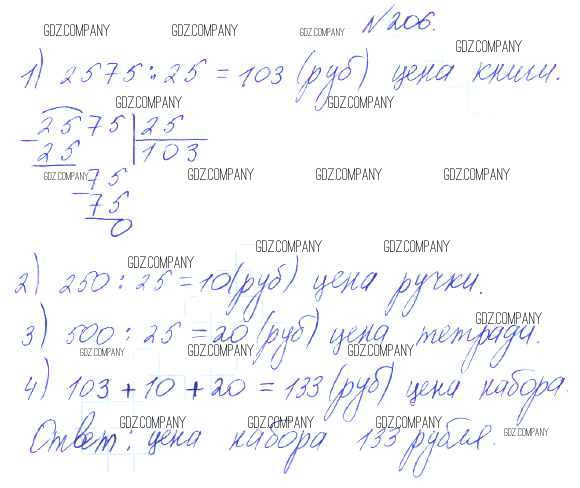 GDZ.COMPANY GDZ.COMPANY GDZ.COMPANY №206.
GDZ.COMPANY
1) 2575 : 25 = 103 (руб) цена книги.
GDZ.COMPANY GDZ.COMPANY
2575 | 25
25 | 103
GDZ.COMPANY GDZ.COMPANY GDZ.COMPANY GDZ.COMPANY
75
75
0
GDZ.COMPANY GDZ.COMPANY
GDZ.COMPANY
2) 250 : 25 = 10 (руб) цена ручки.
GDZ.COMPANY
3) 500 : 25 = 20 (руб) цена тетради.
GDZ.COMPANY GDZ.COMPANY GDZ.COMPANY
4) 103 + 10 + 20 = 133 (руб) цена набора.
GDZ.COMPANY GDZ.COMPANY GDZ.COMPANY GDZ.COMPANY
Ответ: цена набора 133 рубля.